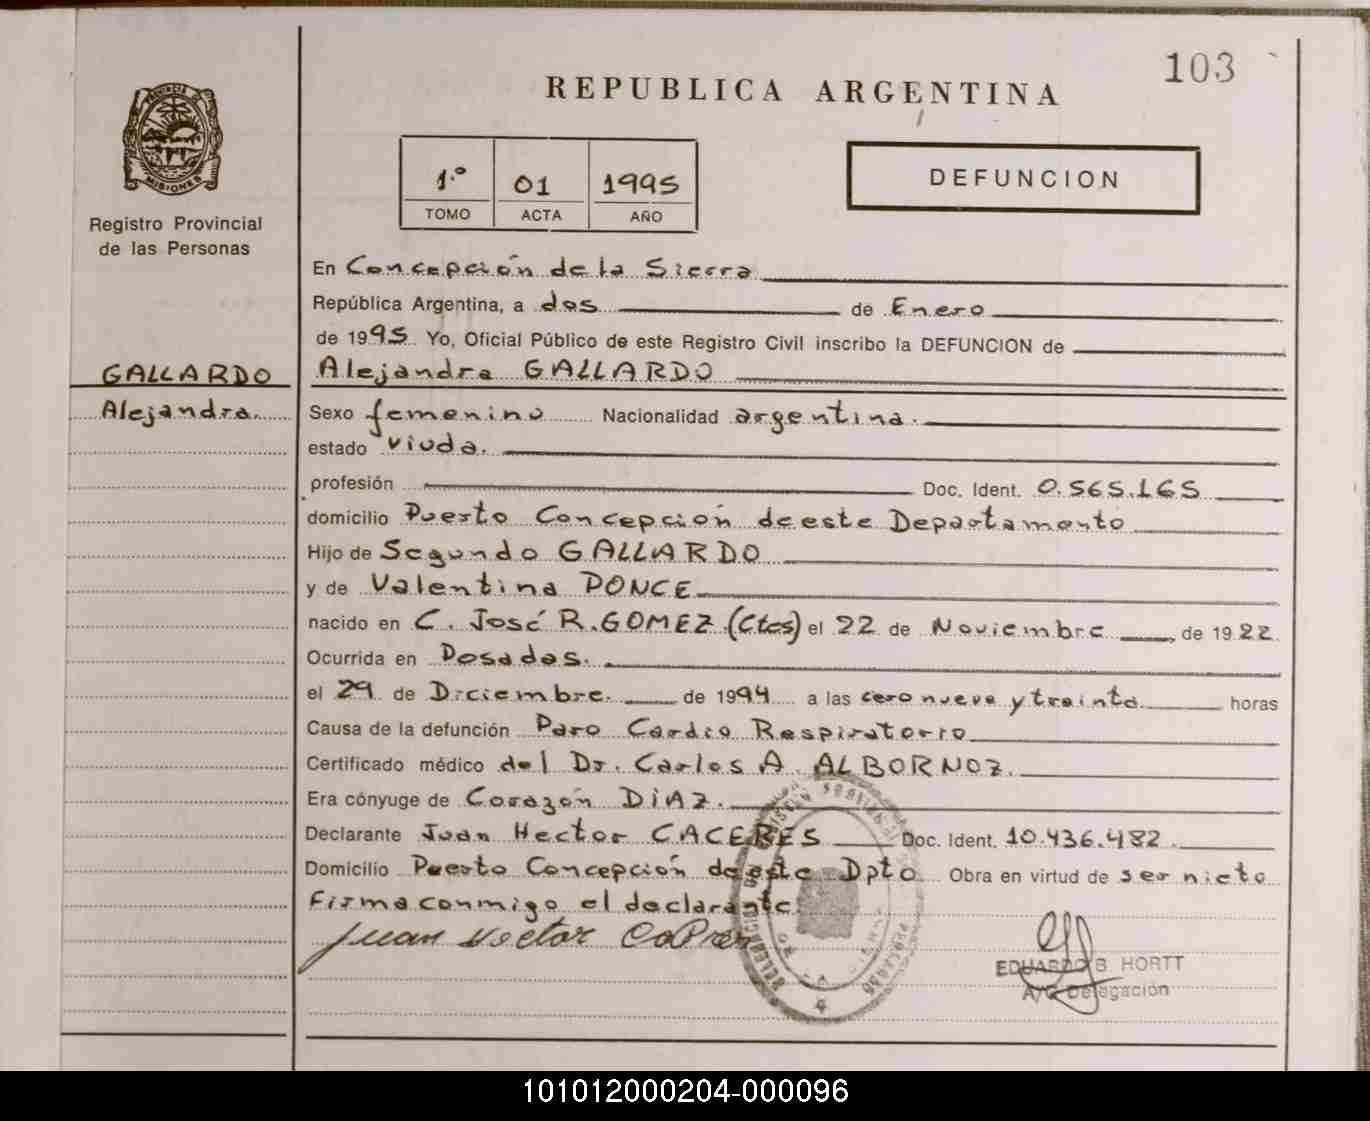 103
REPUBLICA ARGENTINA
PROVINCIA DE MISIONES
Registro Provincial
de las Personas
1.º 01 1995
TOMO ACTA AÑO
DEFUNCION
En Concepción de la Sierra
República Argentina, a dos de Enero
de 1995 Yo, Oficial Público de este Registro Civil inscribo la DEFUNCION de
GALLARDO
Alejandra GALLARDO
Alejandra.
Sexo femenino Nacionalidad argentina.
estado viuda.
profesión Doc. Ident. 0.565.165
domicilio Puerto Concepción de este Departamento
Hijo de Segundo GALLARDO
y de Valentina PONCE
nacido en C. José R. GOMEZ (Ctes) el 22 de Noviembre, de 1922
Ocurrida en Posadas.
el 29 de Diciembre. de 1994 a las cero nueve y treinta. horas
Causa de la defunción Paro Cardio Respiratorio
Certificado médico del Dr. Carlos A. ALBORNOZ.
Era cónyuge de Corazón DIAZ.
Declarante Juan Hector CACERES Doc. Ident. 10.436.482.
Domicilio Puerto Concepción de este Dpto Obra en virtud de ser nieto
Firma conmigo el declarante.
Juan Hector
EDUARDO B. HORTT
A/C Delegación
101012000204-000096